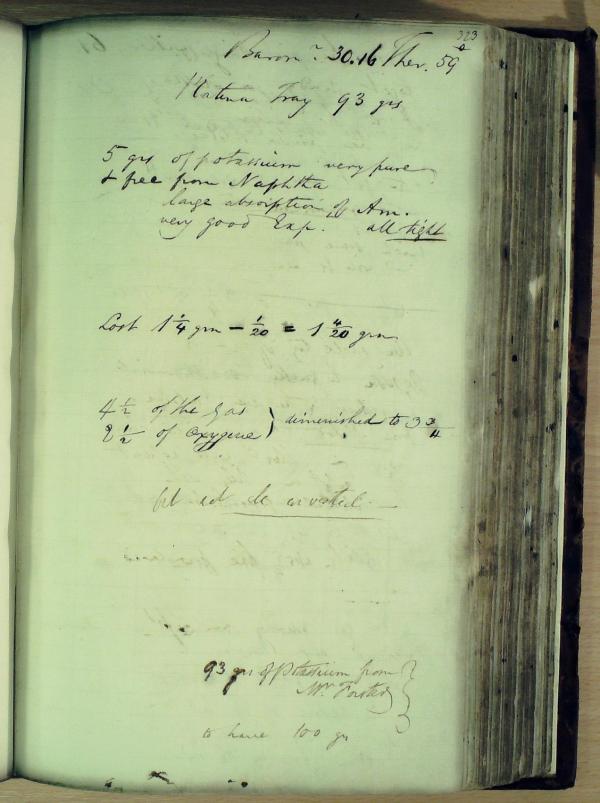 323
Barom.r 30.16 Ther. 59
Platina Tray 93 grs
5 grs of potassium very pure
& free from Naphtha
large absorption of Am.
very good Exp. all tight
Lost 1 1/4 grn - 1/20 = 1 4/20 grn
4 1/2 of the gas } diminished to 3 3/4
2 1/2 of oxygene
be
93 grs of Potassium from
Mr.
to have 100 gr